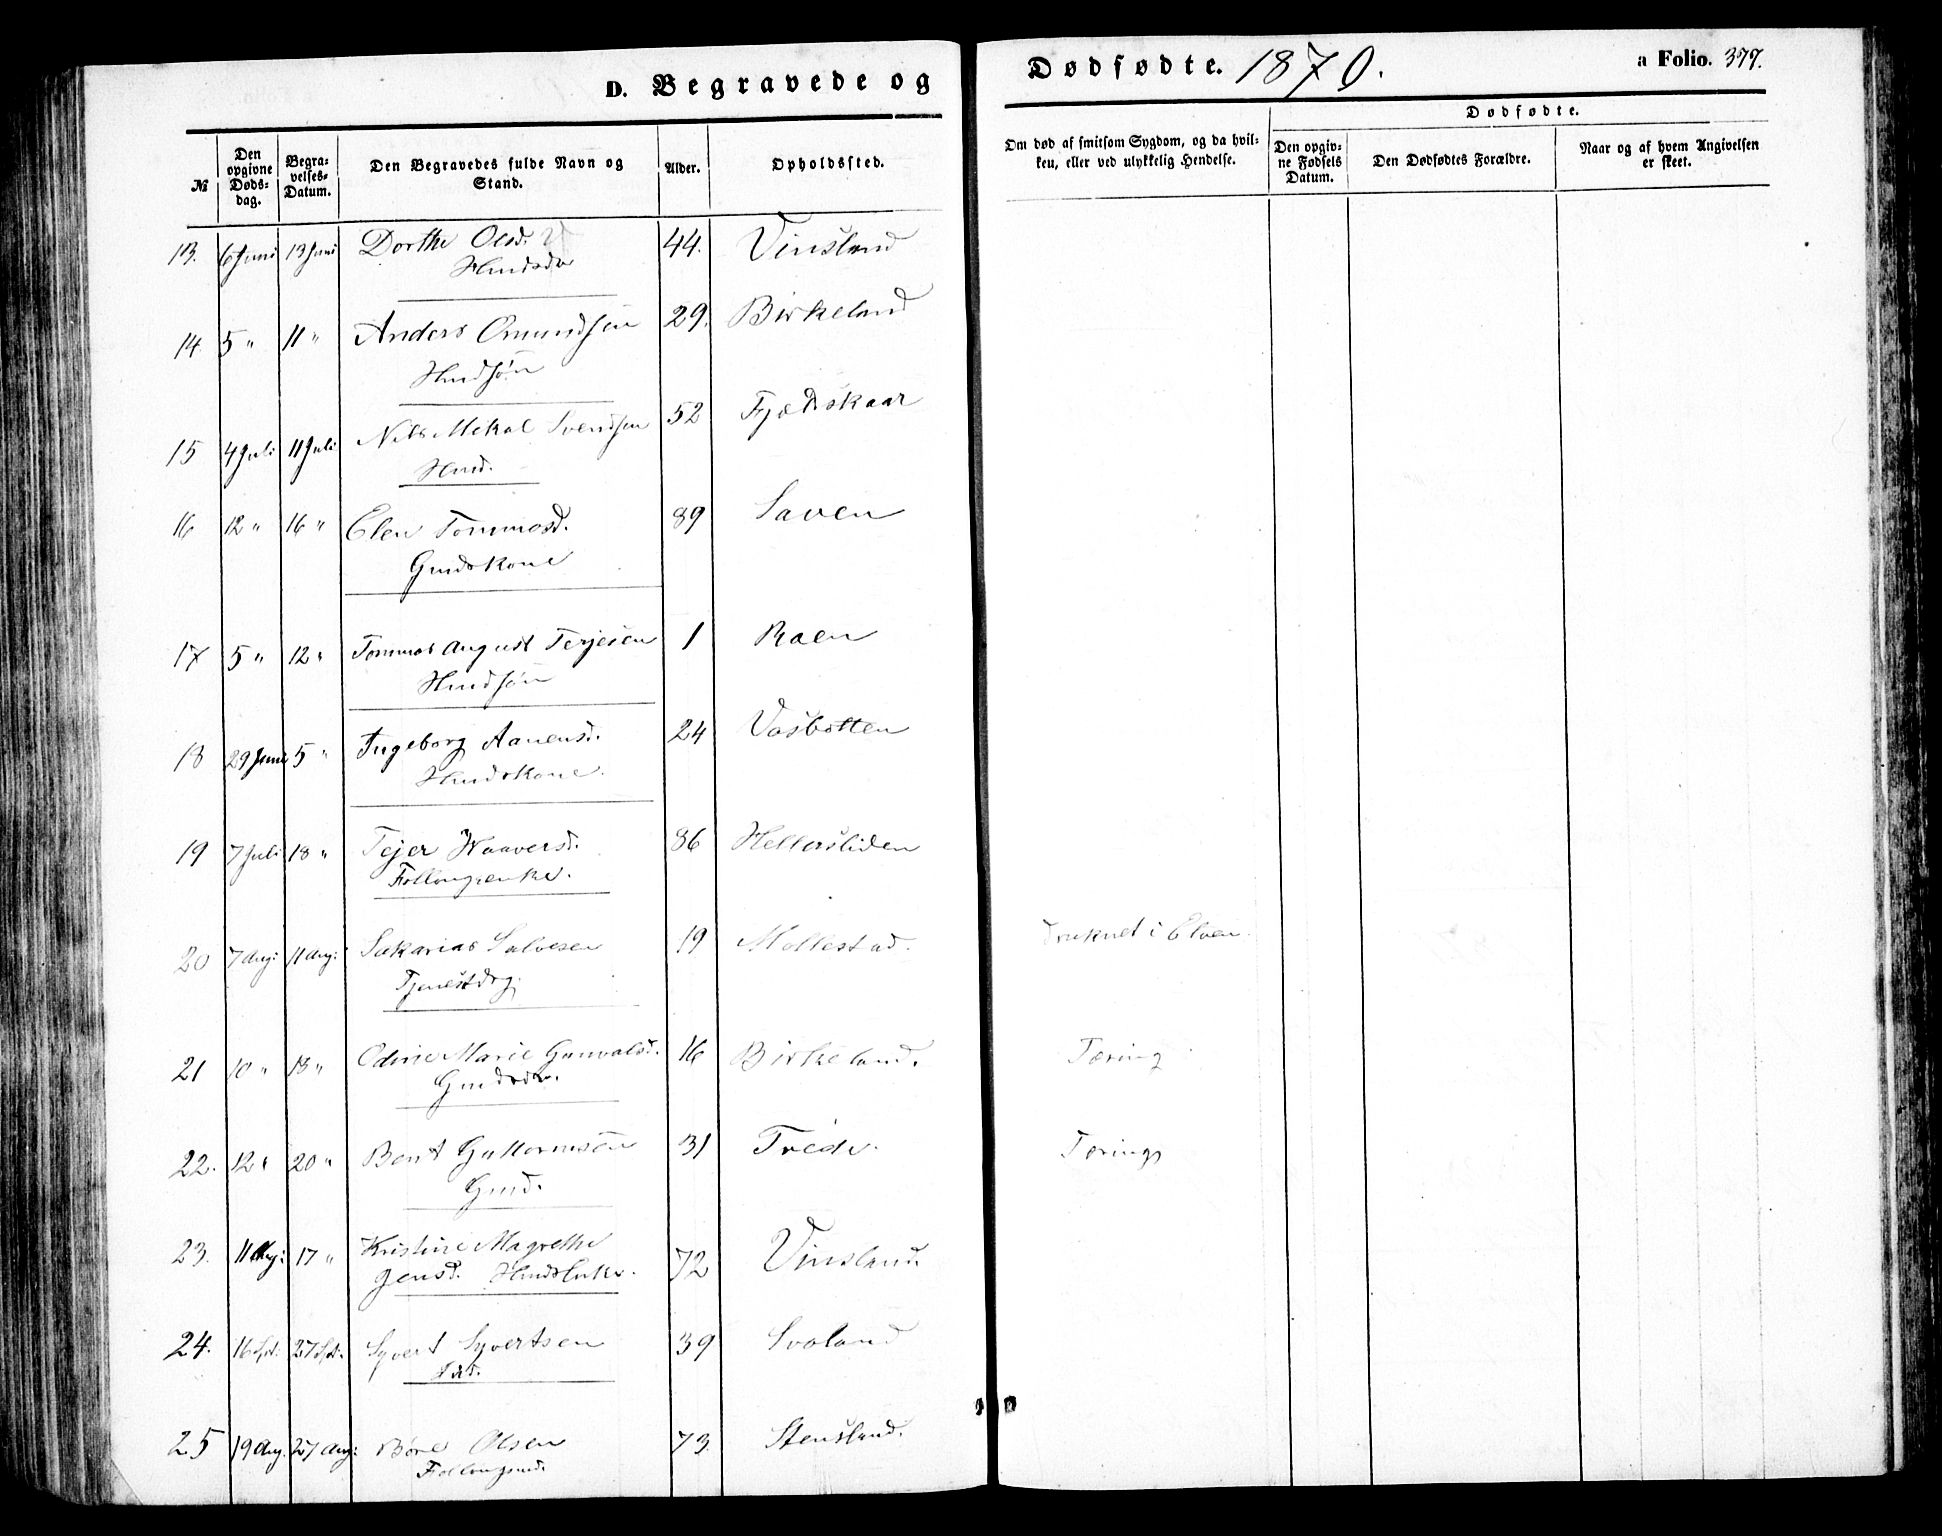 D. Begravede og Dødfødte. 1870. a Folio. 377.
Dødfødte.
№ Den opgivne Dødsdag. Begravelses-Datum. Den Begravedes fulde Navn og Stand. Alder. Opholdssted. Om død af smitsom Sygdom, og da hvilken, eller ved ulykkelig Hendelse. Den opgivne Fødsels Datum. Den Dødfødtes Forældre. Naar og af hvem Angivelsen er skeet.
13. 6 Juni 13 Juni Dorthe Olsd. 44. Vinsland
14. 5 " 11 " Anders Omundsen 29. Birkeland
Hmdsøn
15 4 Juli 11 Juli Nils Mikal Svendsen 52 Fjeldskaar
Hmd.
16 12 " 16 " Elen Tommasd. 89 Laven
Gmdskone
17 5 " 12 " Tommas August Terjesen 1 Roen
Hmdsøn
18 29 Juni 5 " Ingeborg Aanensd. 24 Vasbotten
Hmdskone.
19 7 Juli 18 " Tejer Haaversd. 86 Hellersliden
Follougsenke.
20 7 Aug: 11 Aug: Sakarias Salvesen 19 Mollestad. Druknet i Elven.
Tjenestdrg:
21 10 " 18 " Odine Marie Gunvalsd. 16 Birkeland. Tæring
Gmdsdtr.
22. 12 " 20 " Bent Guttormsen 31 Trede. Tæring
Gmd.
23. 11 Aug: 17 " Kristine Magrethe
Jensd. 72 Vinsland.
24. 16 Spt: 27 Spt. Syvert Syvertsen 39 Svaland
25 19 Aug. 27 Aug: Børe Olsen 73 Stensland.
Follougsmd.